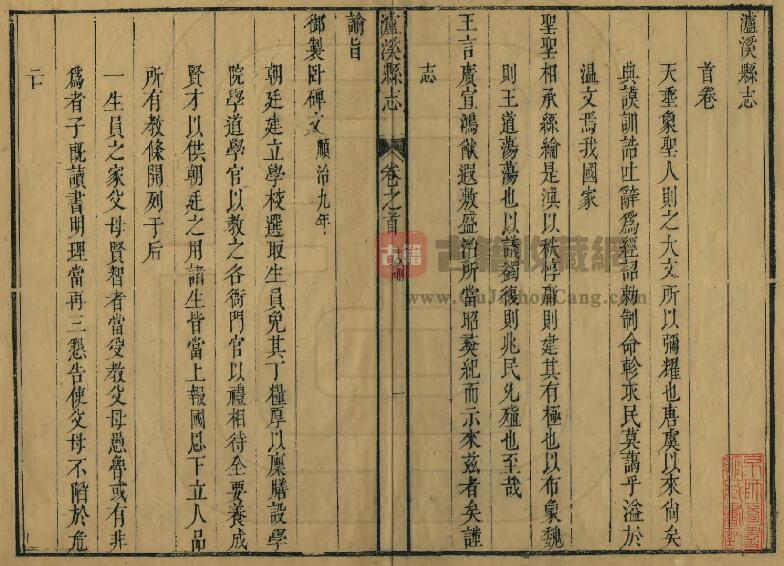 瀘溪縣志
首卷
天垂象聖人則之大文所以彌耀也唐虞以來尚矣
典謨訓誥吐辭爲經詔勅制命軫求民莫藹乎溢於
温文焉我國家
聖聖相承絲綸是渙以秩惇庸則建其有極也以布象魏
則王道蕩蕩也以議蠲復則兆民允殖也至哉
王言廣宣鴻猷遐敷盛治所當昭彝紀而示來茲者矣謹
志
瀘溪縣志
卷之首
一
諭旨
御製卧碑文順治九年
朝廷建立學校選取生員免其丁糧厚以廪膳設學
院學道學官以教之各衙門官以禮相待全要養成
賢才以供朝廷之用諸生皆當上報國恩下立人品
所有教條開列于后
一生員之家父母賢智者當受教父母愚魯或有非
爲者子既讀書明理當再三懇告使父母不陷於危
古籍
古籍收藏網
www.GuJiShouCang.com